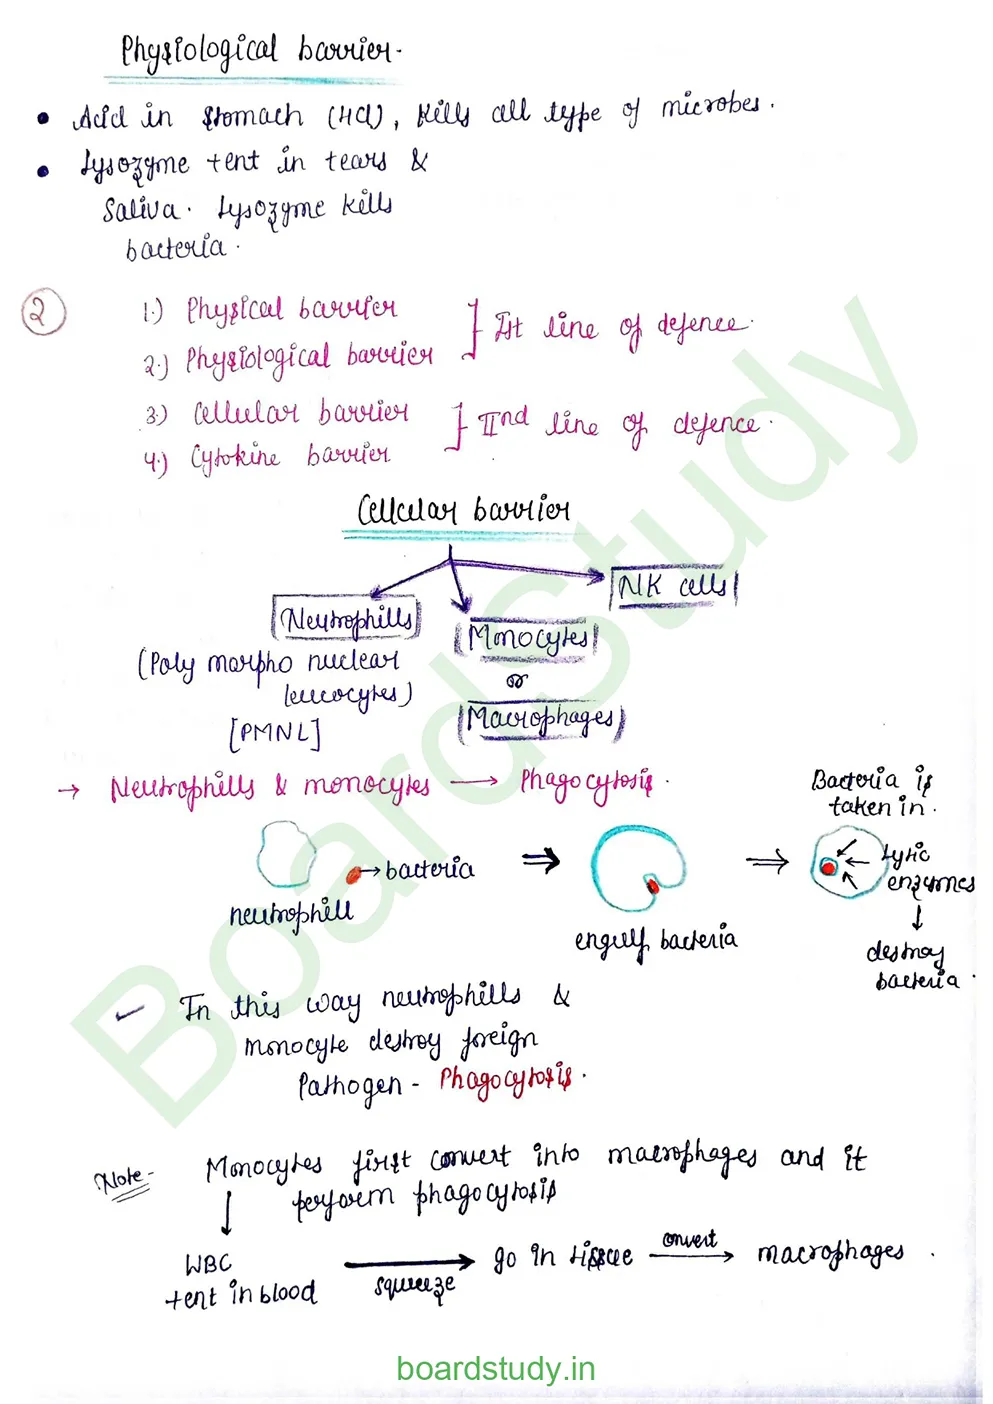 Physiological barrier.
• Acid in stomach (HCl), kills all type of microbes.
• Lysozyme +ent in tears &
Saliva. Lysozyme kills
bacteria.
2
1.) Physical barrier
2.) Physiological barrier
Ist line of defence.
3.) Cellular barrier
4.) Cytokine barrier
IInd line of defence.
Cellular barrier
NK cells
Neutrophills
Monocytes
(Poly morpho nuclear
leucocytes)
[PMNL]
or
Macrophages
→ Neutrophills & monocytes → Phagocytosis.
Bacteria is
taken in.
→ bacteria
⇒
⇒
Lytic
enzymes
neutrophill
engulf bacteria
↓
destroy
bacteria.
In this way neutrophills &
monocyte destroy foreign
Pathogen - Phagocytosis.
Note - Monocytes first convert into macrophages and it
perform phagocytosis
↓
WBC
+ent in blood
squeeze
go in tissue
convert
macrophages.
BoardStudy
boardstudy.in